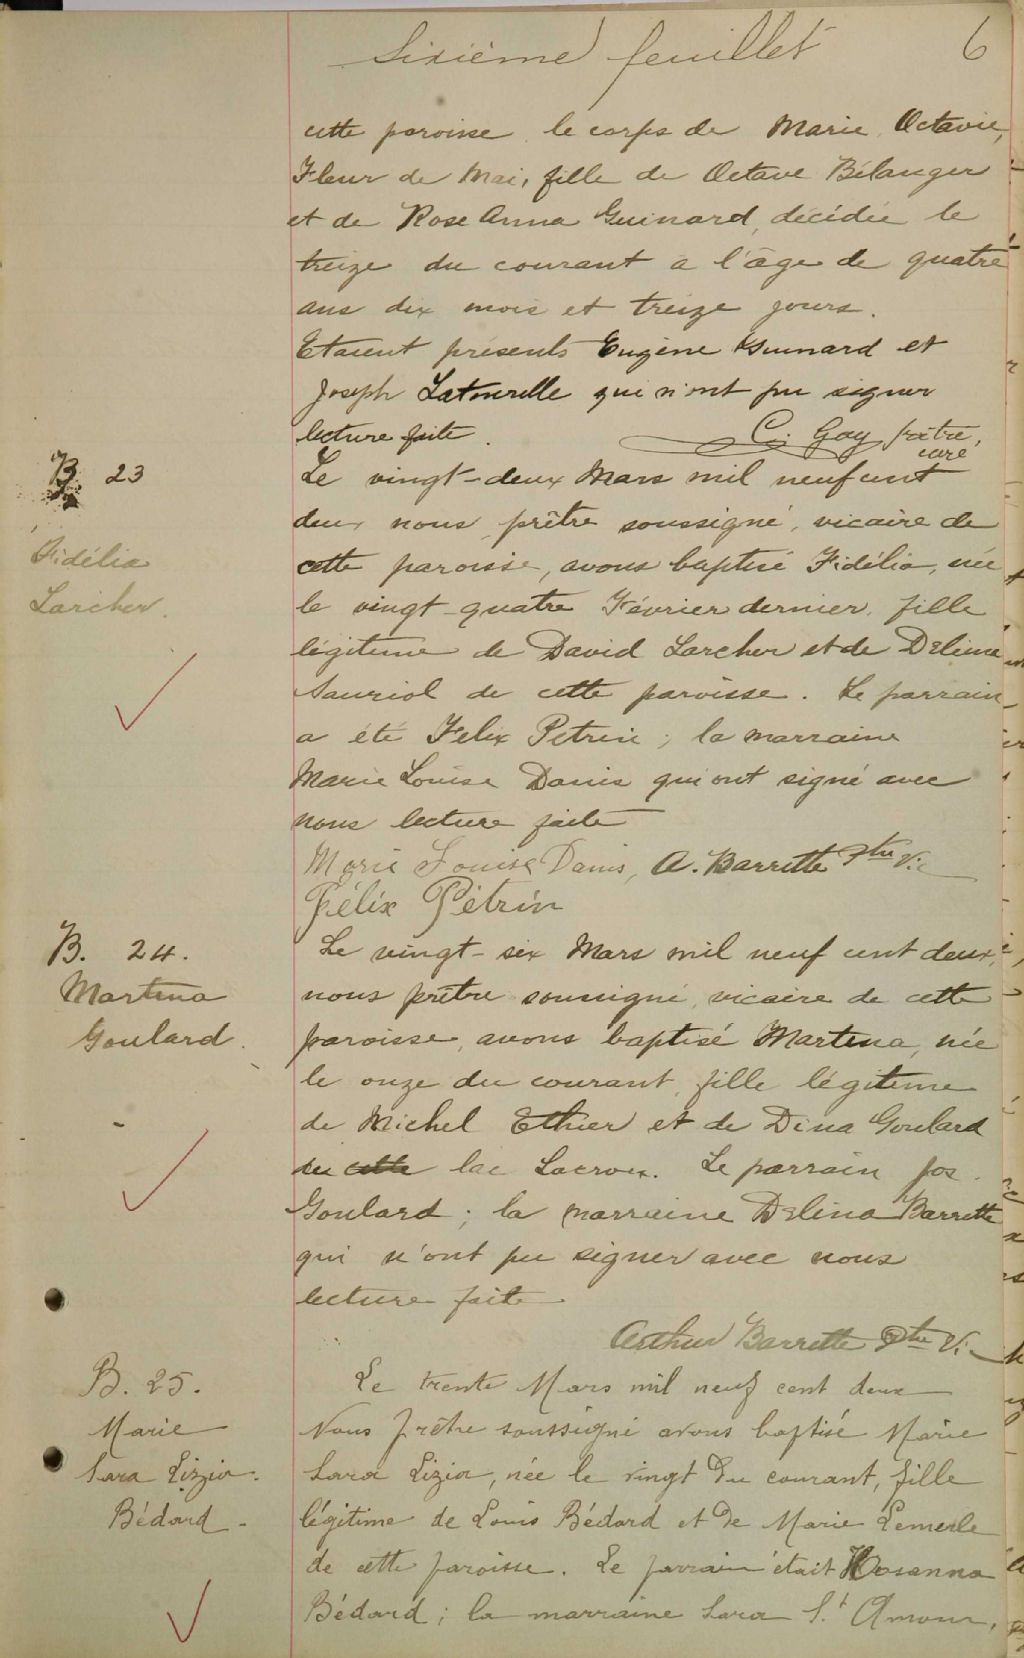 Sixième feuillet 6
cette paroisse le corps de Marie Octavie,
Fleur de Mai, fille de Octave Bélanger
et de Rose Anna Guinard, décédée le
treize du courant a l'âge de quatre
ans dix mois et treize jours.
Etaient présents Eugène Guinard et
Joseph Latourelle qui n'ont pu signer
lecture faite. C. Gay prêtre,
curé
B 23
Fidélia
Larcher.
Le vingt-deux Mars mil neuf cent
deux nous prêtre soussigné, vicaire de
cette paroisse, avons baptisé Fidélia, née
le vingt-quatre Février dernier, fille
légitime de David Larcher et de Delima
Sauriol de cette paroisse. Le parrain
a été Felix Petrin; la marraine
Marie Louise Danis qui ont signé avec
nous lecture faite
Marie Louise Danis, A. Barrette Ptre Vic
Félix Pétrin
B. 24.
Martina
Goulard.
Le vingt-six Mars mil neuf cent deux,
nous prêtre soussigné, vicaire de cette
paroisse, avons baptisé Martina, née
le onze du courant, fille légitime
de Michel Ethier et de Dina Goulard
de cette lac Lacroix. Le parrain Jos.
Goulard; la marraine Delina Barrette
qui n'ont pu signer avec nous
lecture faite
Arthur Barrette Ptre Vi
B. 25.
Marie
Sara Lizia.
Bédard.
Le trente Mars mil neuf cent deux
Nous prêtre soussigné avons baptisé Marie
Sara Lizia, née le vingt du courant, fille
légitime de Louis Bédard et de Marie Lemerle
de cette paroisse. Le parrain était Hosanna
Bédard; la marraine Sara St Amour,